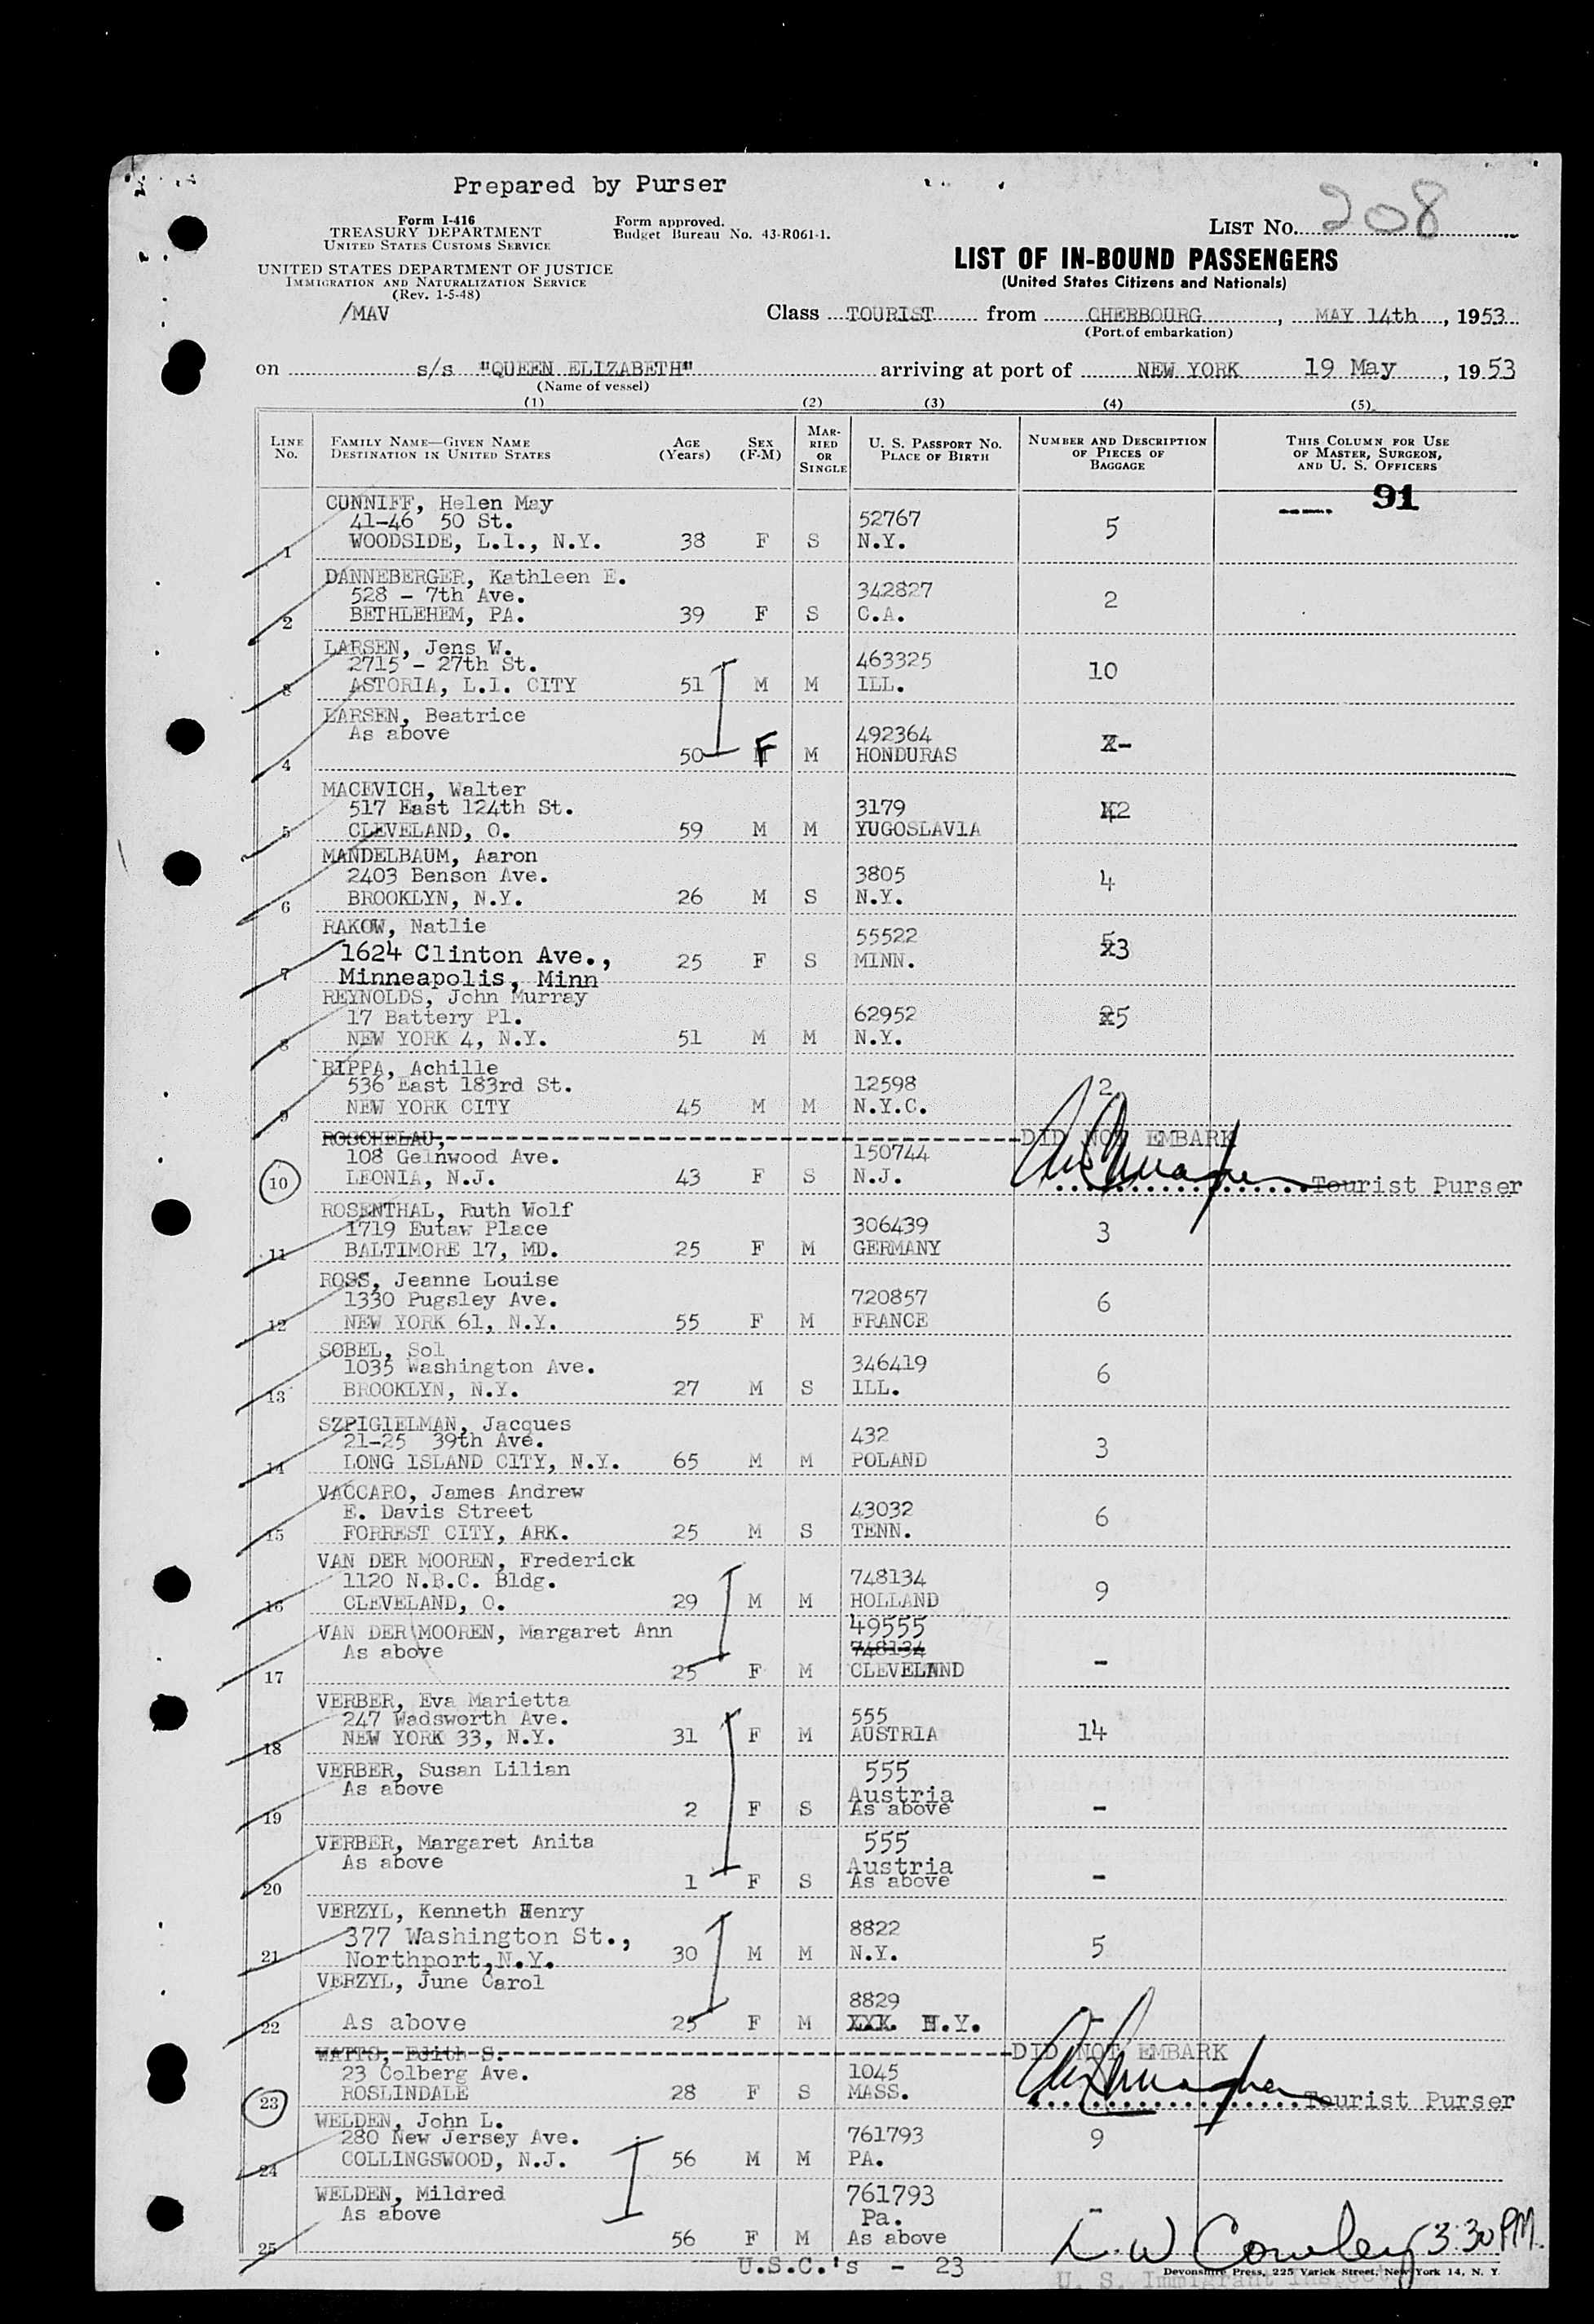 Prepared by Purser
Form I-416
TREASURY DEPARTMENT
UNITED STATES CUSTOMS SERVICE
UNITED STATES DEPARTMENT OF JUSTICE
IMMIGRATION AND NATURALIZATION SERVICE
(Rev. 1-5-48)
/MAV
Form approved.
Budget Bureau No. 43-R061-1.
LIST No. 208
LIST OF IN-BOUND PASSENGERS
(United States Citizens and Nationals)
Class TOURIST from CHERBOURG, MAY 14th, 1953
(Port of embarkation)
on s/s "QUEEN ELIZABETH" arriving at port of NEW YORK 19 May, 1953
(Name of vessel)
(1) (2) (3) (4) (5)
LINE No. FAMILY NAME—GIVEN NAME DESTINATION IN UNITED STATES AGE (Years) SEX (F-M) MARRIED OR SINGLE U. S. PASSPORT NO. PLACE OF BIRTH NUMBER AND DESCRIPTION OF PIECES OF BAGGAGE THIS COLUMN FOR USE OF MASTER, SURGEON, AND U. S. OFFICERS
91
CUNNIFF, Helen May
41-46 50 St. 52767 5
1 WOODSIDE, L.I., N.Y. 38 F S N.Y.
DANNEBERGER, Kathleen E.
528 - 7th Ave. 342827 2
2 BETHLEHEM, PA. 39 F S C.A.
LARSEN, Jens W.
2715 - 27th St. 463325 10
3 ASTORIA, L.I. CITY 51 M M ILL.
LARSEN, Beatrice
As above 492364 -
4 50 F M HONDURAS
MACEVICH, Walter
517 East 124th St. 3179 2
5 CLEVELAND, O. 59 M M YUGOSLAVIA
MANDELBAUM, Aaron
2403 Benson Ave. 3805 4
6 BROOKLYN, N.Y. 26 M S N.Y.
RAKOW, Natlie
1624 Clinton Ave., 55522 3
7 Minneapolis, Minn 25 F S MINN.
REYNOLDS, John Murray
17 Battery Pl. 62952 5
8 NEW YORK 4, N.Y. 51 M M N.Y.
RIPPA, Achille
536 East 183rd St. 12598 2
9 NEW YORK CITY 45 M M N.Y.C.
ROSCHELAU, DID NOT EMBARK
108 Gelnwood Ave. 150744
10 LEONIA, N.J. 43 F S N.J. Tourist Purser
ROSENTHAL, Ruth Wolf
1719 Eutaw Place 306439 3
11 BALTIMORE 17, MD. 25 F M GERMANY
ROSS, Jeanne Louise
1330 Pugsley Ave. 720857 6
12 NEW YORK 61, N.Y. 55 F M FRANCE
SOBEL, Sol
1035 Washington Ave. 346419 6
13 BROOKLYN, N.Y. 27 M S ILL.
SZPIGIELMAN, Jacques
21-25 39th Ave. 432 3
14 LONG ISLAND CITY, N.Y. 65 M M POLAND
VACCARO, James Andrew
E. Davis Street 43032 6
15 FORREST CITY, ARK. 25 M S TENN.
VAN DER MOOREN, Frederick
1120 N.B.C. Bldg. 748134 9
16 CLEVELAND, O. 29 M M HOLLAND
VAN DER MOOREN, Margaret Ann 49555
As above 748134 -
17 25 F M CLEVELAND
VERBER, Eva Marietta
247 Wadsworth Ave. 555 14
18 NEW YORK 33, N.Y. 31 F M AUSTRIA
VERBER, Susan Lilian 555
As above Austria
19 2 F S As above -
VERBER, Margaret Anita 555
As above Austria
20 1 F S As above -
VERZYL, Kenneth Henry
377 Washington St., 8822 5
21 Northport, N.Y. 30 M M N.Y.
VERZYL, June Carol
8829 -
22 As above 25 F M XXX. N.Y.
WATTS, Edith S. DID NOT EMBARK
23 Colberg Ave. 1045
23 ROSLINDALE 28 F S MASS. Tourist Purser
WELDEN, John L.
280 New Jersey Ave. 761793 9
24 COLLINGSWOOD, N.J. 56 M M PA.
WELDEN, Mildred 761793 -
As above Pa.
25 56 F M As above
L. W. Cowley 3:30 PM.
U.S.C.'s - 23
Devonshire Press, 225 Varick Street, New York 14, N. Y.
U. S. Immigrant Inspector